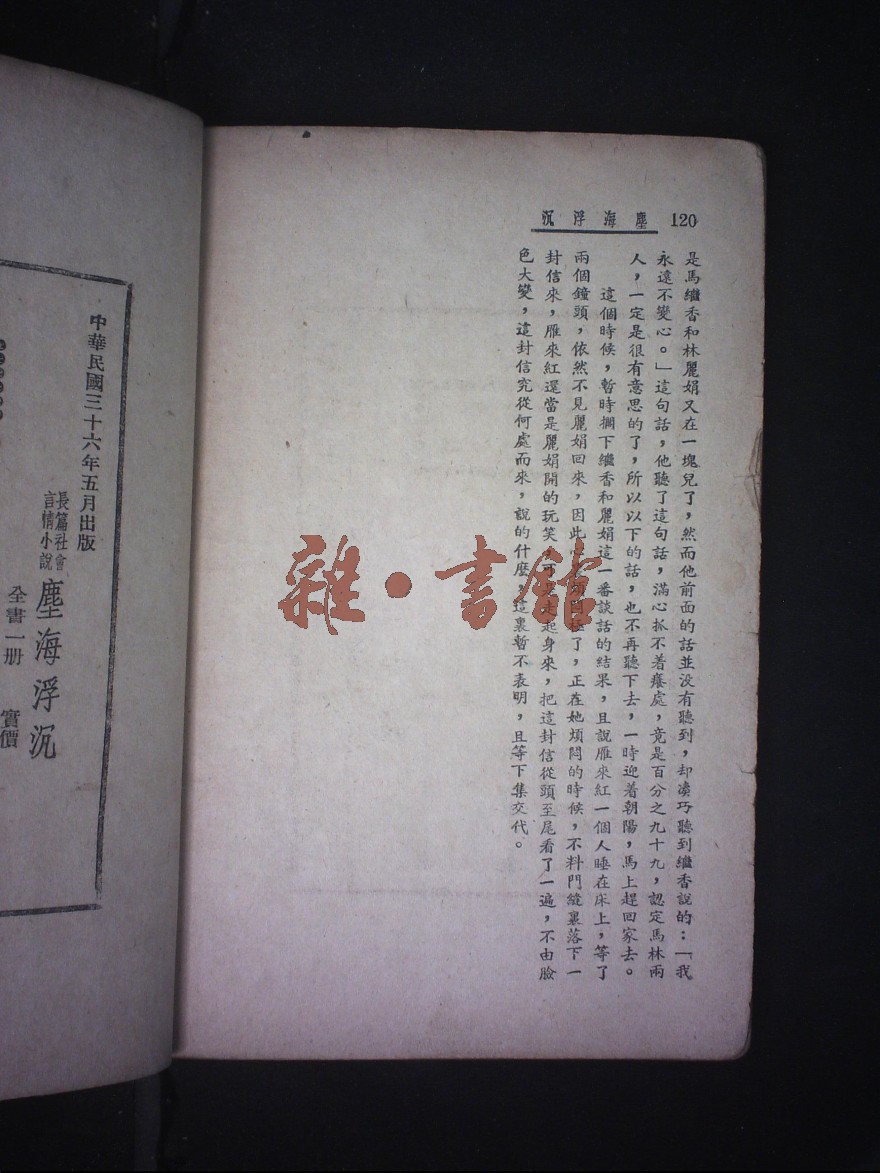 120 塵海浮沉
是馬繼香和林麗娟又在一塊兒了，然而他前面的話並没有聽到，却凑巧聽到繼香說的：「我
永遠不變心。」這句話，他聽了這句話，滿心抓不着癢處，竟是百分之九十九，認定馬林兩
人，一定是很有意思的了，所以以下的話，也不再聽下去，一時迎着朝陽，馬上趕回家去。
這個時候，暫時擱下繼香和麗娟這一番談話的結果，且說雁來紅一個人睡在床上，等了
兩個鐘頭，依然不見麗娟回來，因此心極了，正在她煩悶的時候，不料門縫裏落下一
封信來，雁來紅還當是麗娟開的玩笑，起身來，把這封信從頭至尾看了一遍，不由臉
色大變，這封信究從何處而來，說的什麽，這裏暫不表明，且等下集交代。
中華民國三十六年五月出版
長篇社會
言情小說
塵海浮沉
全書一册 實價
雜·書館